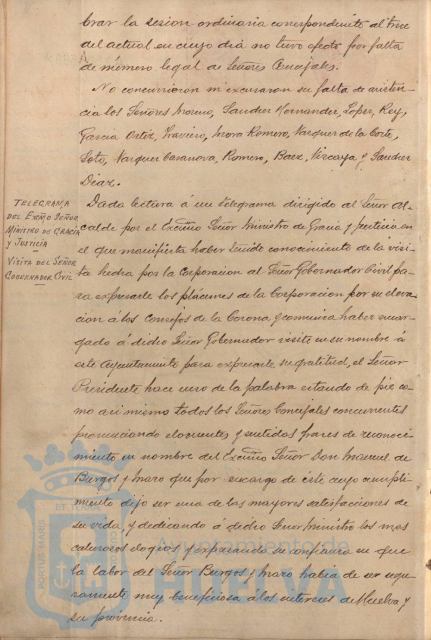 brar la sesion ordinaria correspondiente al trece
del actual en cuyo dia no tuvo efecto por falta
de número legal de Señores Concejales.
No concurrieron ni excusaron su falta de asisten-
cia los Señores Moreno, Sanchez Hernandez, Lopez, Rey,
Garcia Ortiz, Traviero, Mora Romero, Vazquez de la Corte,
Soto, Vazquez Casanova, Romero, Baez, Vizcaya y Sanchez
Diaz.
TELEGRAMA
DEL EXCMO SEÑOR
MINISTRO DE GRACIA
Y JUSTICIA
VISITA DEL SEÑOR
GOBERNADOR CIVIL
Dada lectura á un telegrama dirigido al Señor Al-
calde por el Excmo Señor Ministro de Gracia y Justicia en
el que manifiesta haber tenido conocimiento de la visi-
ta hecha por la Corporacion al Señor Gobernador Civil pa-
ra expresarle los plácemes de la Corporacion por su eleva-
cion á los Consejos de la Corona y comunica haber encar-
gado á dicho Señor Gobernador visite en su nombre á
este Ayuntamiento para expresarle su gratitud, el Señor
Presidente hace uso de la palabra estando de pie co-
mo asi mismo todos los Señores Concejales concurrentes
pronunciando elocuentes y sentidas frases de reconoci-
miento en nombre del Excmo Señor Don Manuel de
Burgos y Mazo que por encargo de éste cuyo cumpli-
miento dijo ser una de las mayores satisfacciones de
su vida, y dedicando á dicho Señor Ministro los mas
calurosos elogios y expresando su confianza en que
la labor del Señor Burgos y Mazo habia de ser segu-
ramente muy beneficiosa á los intereses de Huelva y
su provincia.
Ayuntamiento de
HUELVA
PORTUS MARIS
ET TERRAE CUSTODIA